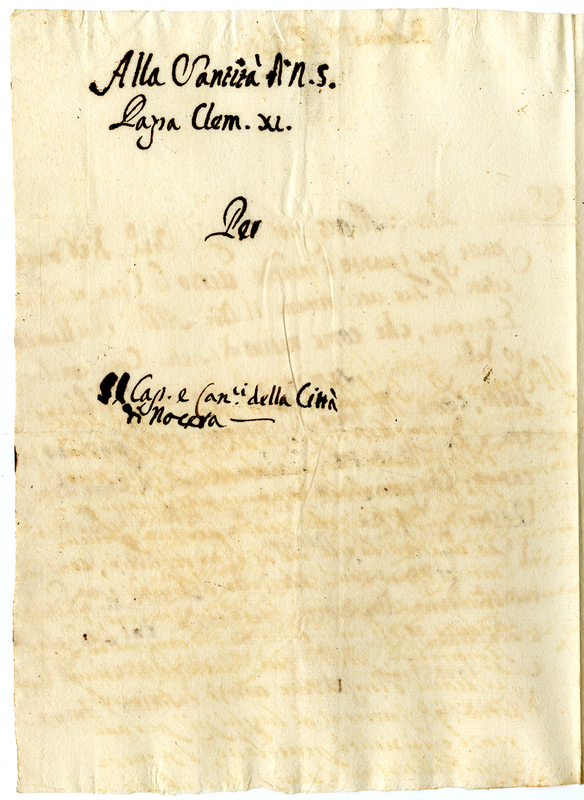 Alla Santità di N. S.
Papa Clem. XI.
Per
Il Cap. e Can.ci della Città
di Nocera